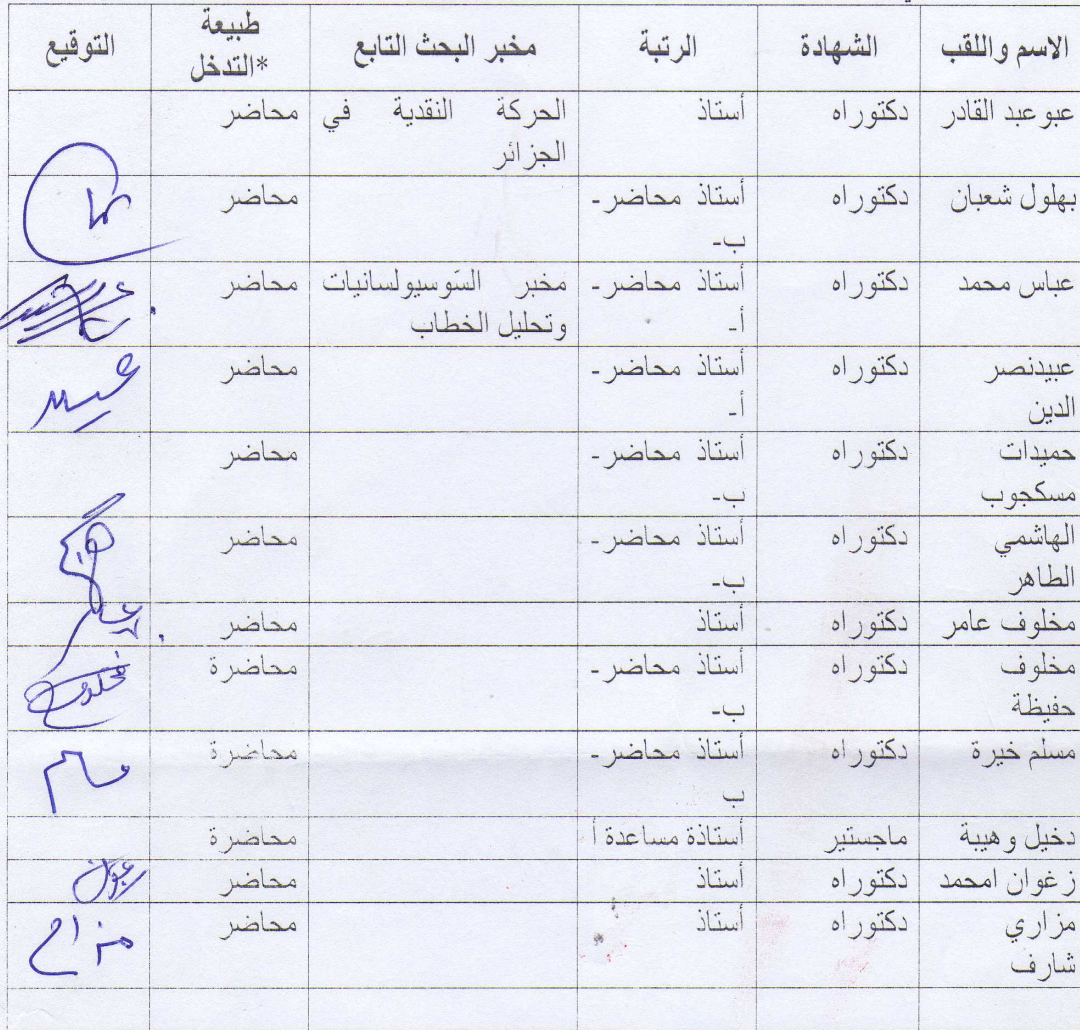 الاسم واللقب الشهادة الرتبة مخبر البحث التابع طبيعة التدخل* التوقيع
عبو عبد القادر دكتوراه أستاذ الحركة النقدية في محاضر
الجزائر
بهلول شعبان دكتوراه أستاذ محاضر- محاضر
ب-
عباس محمد دكتوراه أستاذ محاضر- مخبر السّوسيولسانيات محاضر
أ- وتحليل الخطاب
عبيدنصر دكتوراه أستاذ محاضر- محاضر عبيد
الدين أ-
حميدات دكتوراه أستاذ محاضر- محاضر
مسكجوب ب-
الهاشمي دكتوراه أستاذ محاضر- محاضر
الطاهر ب-
مخلوف عامر دكتوراه أستاذ محاضر
مخلوف دكتوراه أستاذ محاضر- محاضرة مخلوف
حفيظة ب-
مسلم خيرة دكتوراه أستاذ محاضر- محاضرة
ب
دخيل وهيبة ماجستير أستاذة مساعدة أ محاضرة
زغوان امحمد دكتوراه أستاذ محاضر
مزاري دكتوراه أستاذ محاضر
شارف